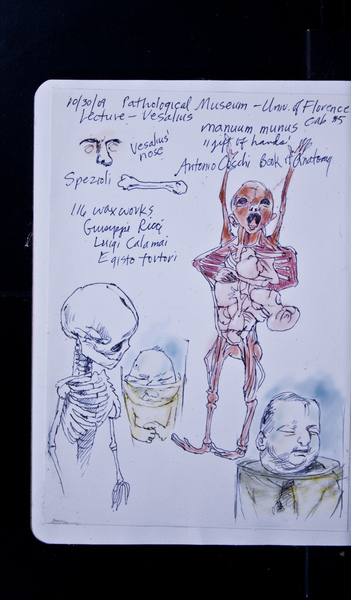 10/30/09 Pathological Museum - Univ. of Florence
Lecture - Vesalius
Cab #5
manuum munus
"gift of hands"
Vesalius'
nose
Antonio Book of Anatomy
Spezioli
116 waxworks
Giuseppe Ricci
Luigi Calamai
Egisto Tortori